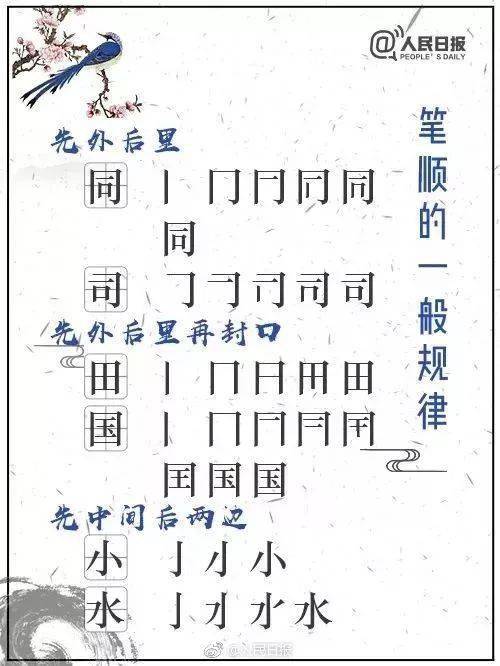 @人民日报
PEOPLE'S DAILY
笔顺的一般规律
先外后里
同 丨 冂 同
同
司 𠃌 司
先外后里再封口
田 丨 冂 田
国 丨 冂
国 国
先中间后两边
小 亅 小
水 亅 水
@人民日报